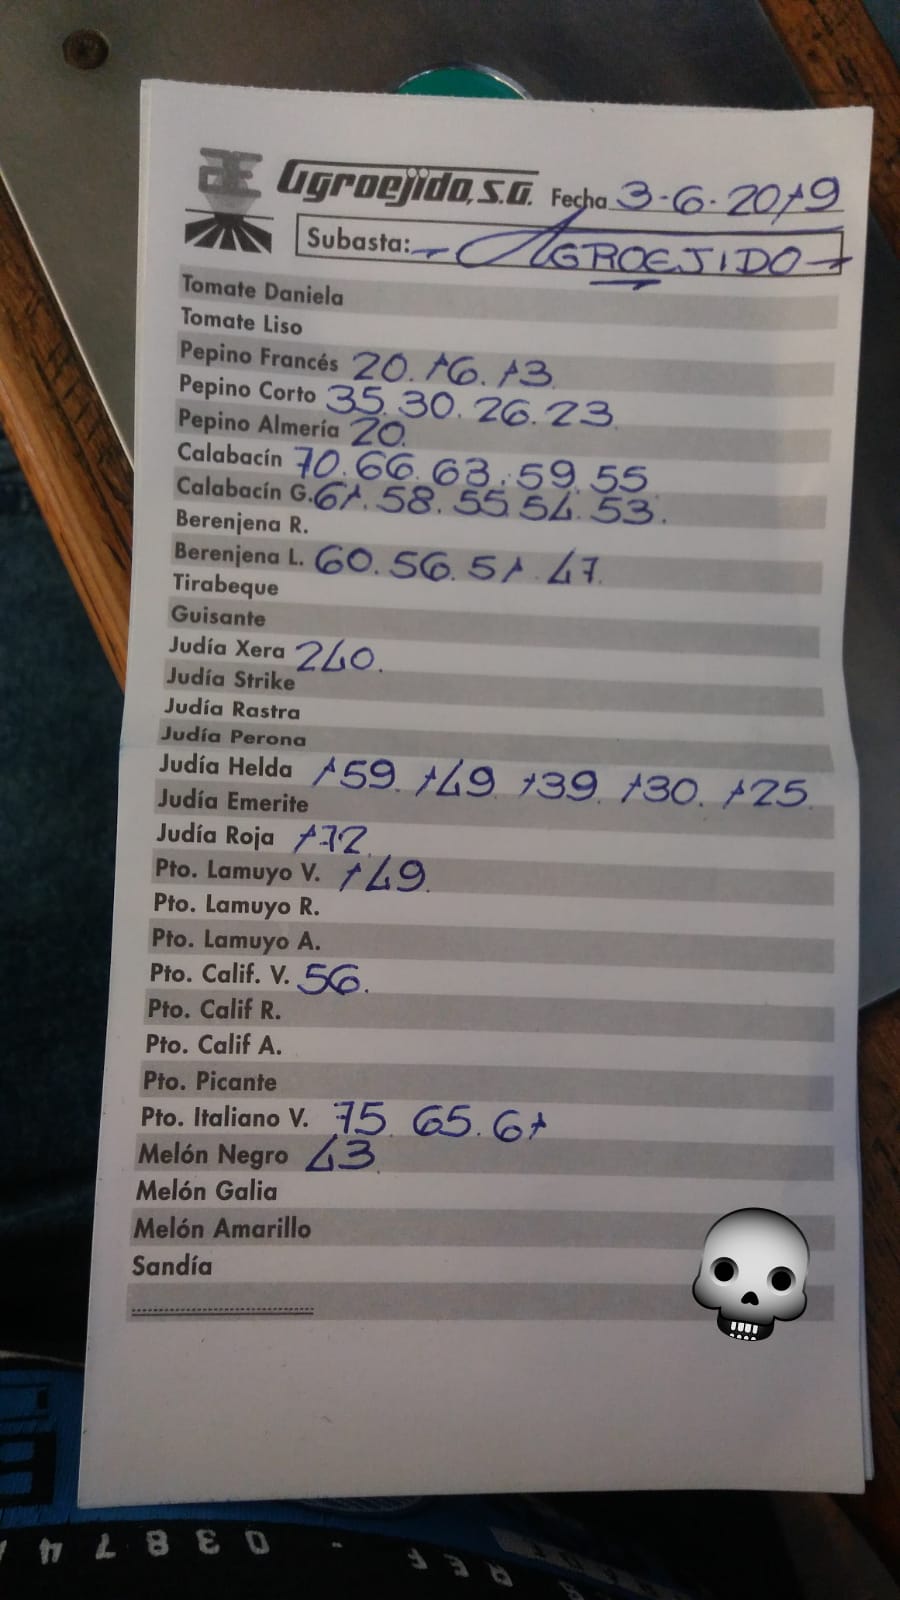 Agroejido, S.A. Fecha 3-6-2019
Subasta: - AGROEJIDO -
Tomate Daniela
Tomate Liso
Pepino Francés 20. 16. 13.
Pepino Corto 35. 30. 26. 23.
Pepino Almería 20.
Calabacín 70. 66. 63. 59. 55
Calabacín G. 61. 58. 55. 54. 53.
Berenjena R.
Berenjena L. 60. 56. 51. 47.
Tirabeque
Guisante
Judía Xera 240.
Judía Strike
Judía Rastra
Judía Perona
Judía Helda 159. 149. 139. 130. 125.
Judía Emerite
Judía Roja 172.
Pto. Lamuyo V. 149.
Pto. Lamuyo R.
Pto. Lamuyo A.
Pto. Calif. V. 56.
Pto. Calif R.
Pto. Calif A.
Pto. Picante
Pto. Italiano V. 75. 65. 61
Melón Negro 43.
Melón Galia
Melón Amarillo
Sandía